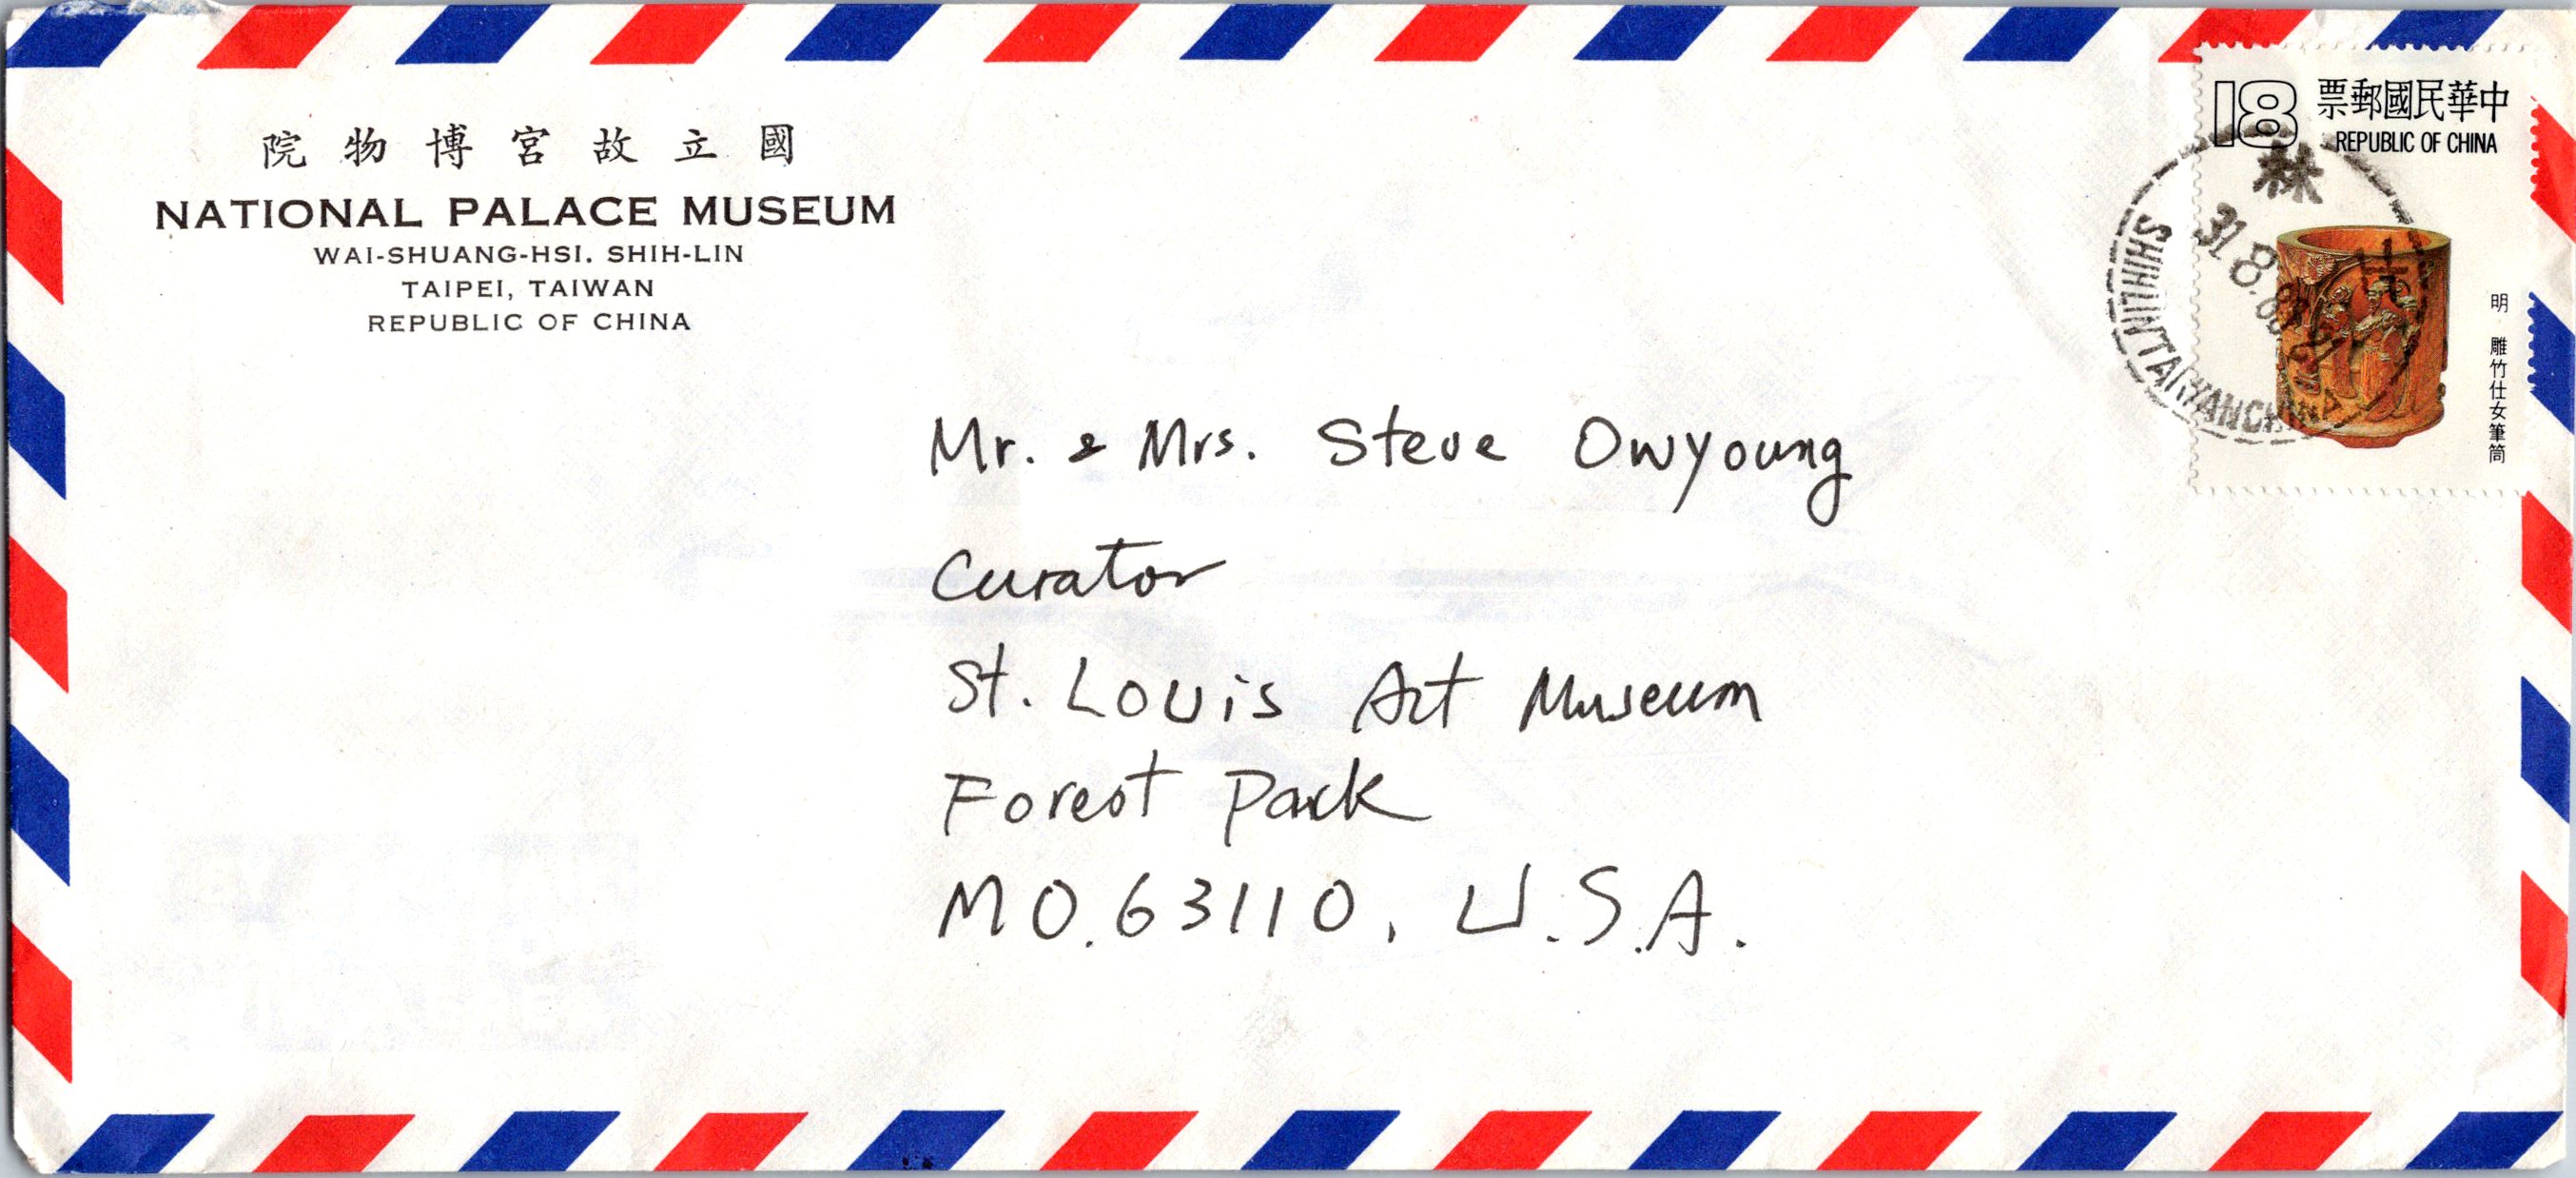 院物博宮故立國
NATIONAL PALACE MUSEUM
WAI-SHUANG-HSI. SHIH-LIN
TAIPEI, TAIWAN
REPUBLIC OF CHINA
18 票郵國民華中
REPUBLIC OF CHINA
林
31.8.83
SHIHLIN TAIWAN CHINA
明 雕竹仕女筆筒
Mr. & Mrs. Steve Owyoung
Curator
St. Louis Art Museum
Forest Park
MO. 63110, U.S.A.